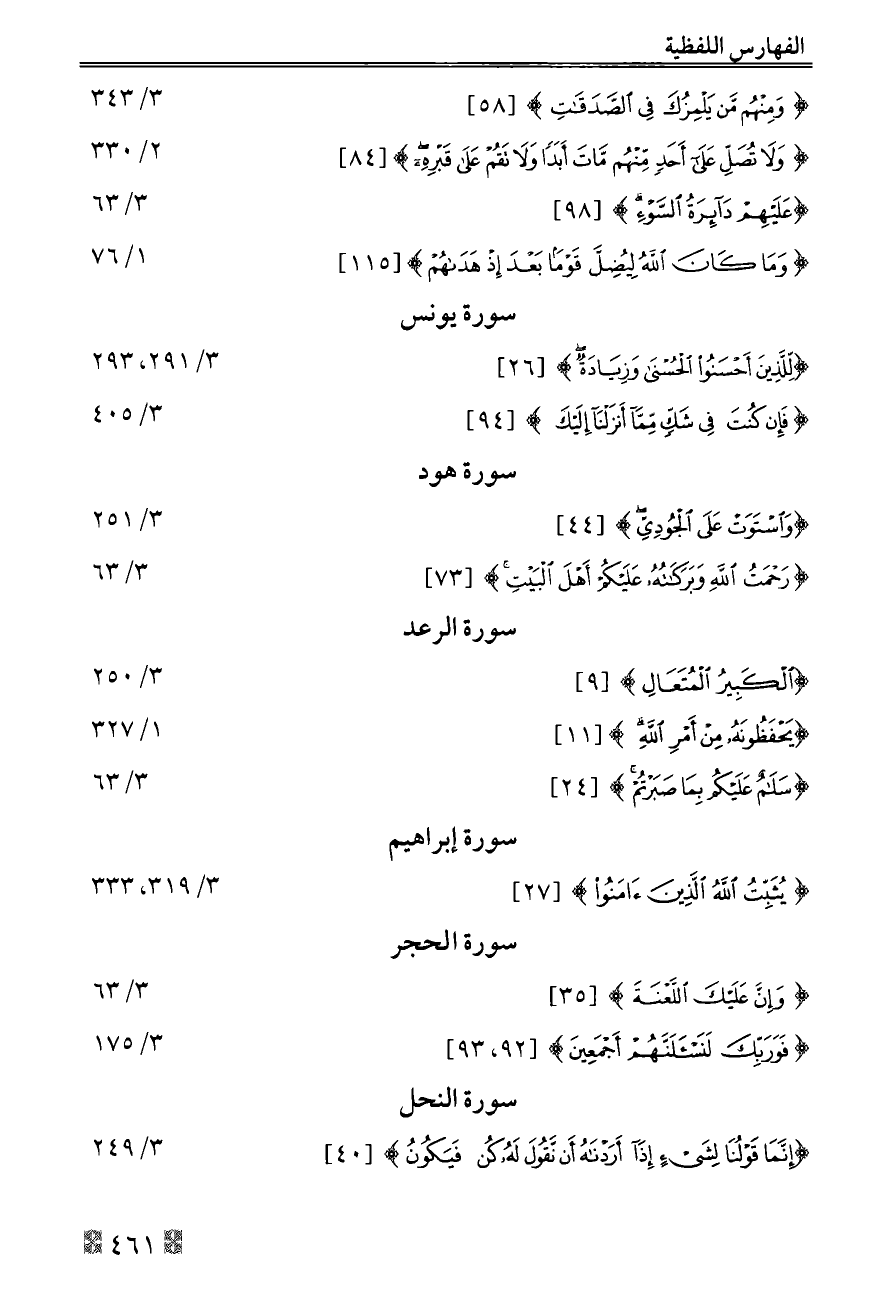 الفهارس اللفظية
﴿ وَمِنْهُم مَّن يَلْمِزُكَ فِى ٱلصَّدَقَٰتِ ﴾ [٥٨] ٣/ ٣٤٣
﴿ وَلَا تُصَلِّ عَلَىٰٓ أَحَدٍ مِّنْهُم مَّاتَ أَبَدًا وَلَا نَقُمْ عَلَىٰ قَبْرِهِۦٓ ۖ ﴾ [٨٤] ٢/ ٣٣٠
﴿عَلَيْهِمْ دَآئِرَةُ ٱلسَّوْءِ ۗ ﴾ [٩٨] ٣/ ٦٣
﴿ وَمَا كَانَ ٱللَّهُ لِيُضِلَّ قَوْمًۢا بَعْدَ إِذْ هَدَىٰهُمْ ﴾ [١١٥] ١/ ٧٦
سورة يونس
﴿لِّلَّذِينَ أَحْسَنُوا۟ ٱلْحُسْنَىٰ وَزِيَادَةٌ ۖ ﴾ [٢٦] ٣/ ٢٩١، ٢٩٣
﴿ فَإِن كُنتَ فِى شَكٍّ مِّمَّآ أَنزَلْنَآ إِلَيْكَ ﴾ [٩٤] ٣/ ٤٠٥
سورة هود
﴿وَٱسْتَوَتْ عَلَى ٱلْجُودِىِّ ۖ ﴾ [٤٤] ٣/ ٢٥١
﴿ رَحْمَتُ ٱللَّهِ وَبَرَكَٰتُهُۥ عَلَيْكُمْ أَهْلَ ٱلْبَيْتِ ۚ ﴾ [٧٣] ٣/ ٦٣
سورة الرعد
﴿ٱلْكَبِيرُ ٱلْمُتَعَالِ ﴾ [٩] ٣/ ٢٥٠
﴿يَحْفَظُونَهُۥ مِنْ أَمْرِ ٱللَّهِ ۗ ﴾ [١١] ١/ ٣٢٧
﴿سَلَٰمٌ عَلَيْكُم بِمَا صَبَرْتُمْ ۚ ﴾ [٢٤] ٣/ ٦٣
سورة إبراهيم
﴿ يُثَبِّتُ ٱللَّهُ ٱلَّذِينَ ءَامَنُوا۟ ﴾ [٢٧] ٣/ ٣١٩، ٣٣٣
سورة الحجر
﴿ وَإِنَّ عَلَيْكَ ٱللَّعْنَةَ ﴾ [٣٥] ٣/ ٦٣
﴿ فَوَرَبِّكَ لَنَسْـَٔلَنَّهُمْ أَجْمَعِينَ ﴾ [٩٢، ٩٣] ٣/ ١٧٥
سورة النحل
﴿إِنَّمَا قَوْلُنَا لِشَىْءٍ إِذَآ أَرَدْنَٰهُ أَن نَّقُولَ لَهُۥ كُن فَيَكُونُ ﴾ [٤٠] ٣/ ٢٤٩
٤٦١